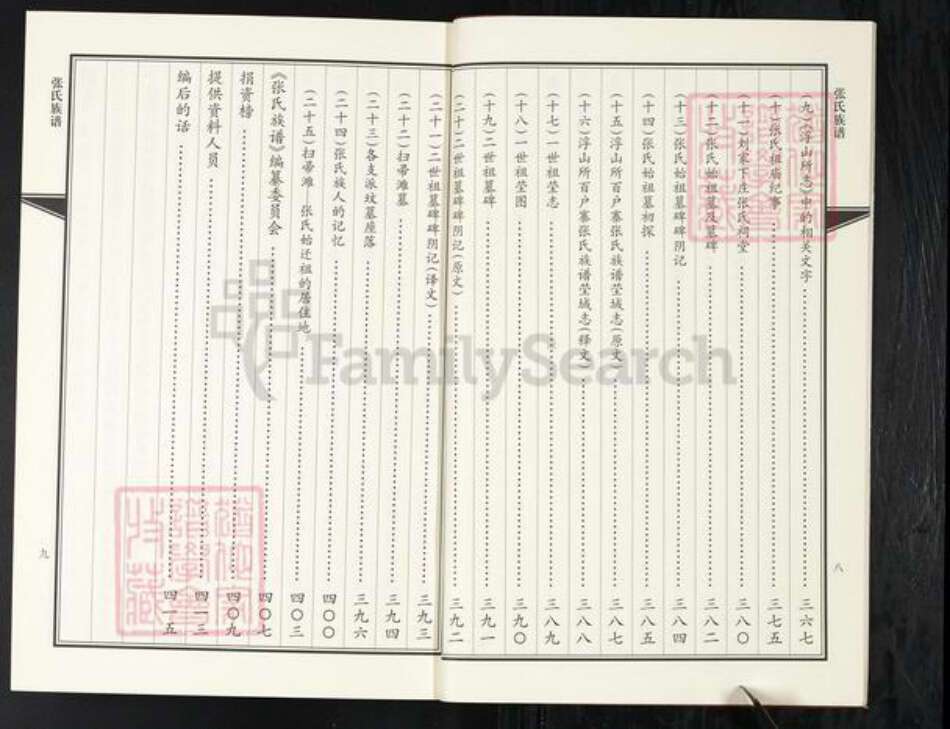 张氏族谱
(九)《浮山所志》中的相关文字 三六七
(十)张氏祖庙纪事 三七五
(十一)刘家下庄张氏祠堂 三八〇
(十二)张氏始祖墓及墓碑 三八二
(十三)张氏始祖墓碑碑阴记 三八四
(十四)张氏始祖墓初探 三八五
(十五)浮山所百户寨张氏族谱茔域志(原文) 三八七
(十六)浮山所百户寨张氏族谱茔域志(释文) 三八八
(十七)一世祖茔志 三八九
(十八)一世祖茔图 三九〇
(十九)二世祖墓碑 三九一
(二十)二世祖墓碑碑阴记(原文) 三九二
八
(二十一)二世祖墓碑碑阴记(译文) 三九三
(二十二)扫帚滩墓 三九四
(二十三)各支派坟墓座落 三九六
(二十四)张氏族人的记忆 四〇〇
(二十五)扫帚滩 张氏始迁祖的居住地 四〇三
《张氏族谱》编纂委员会 四〇七
捐资榜 四〇九
提供资料人员 四一三
编后的话 四一五
张氏族谱
九
FamilySearch